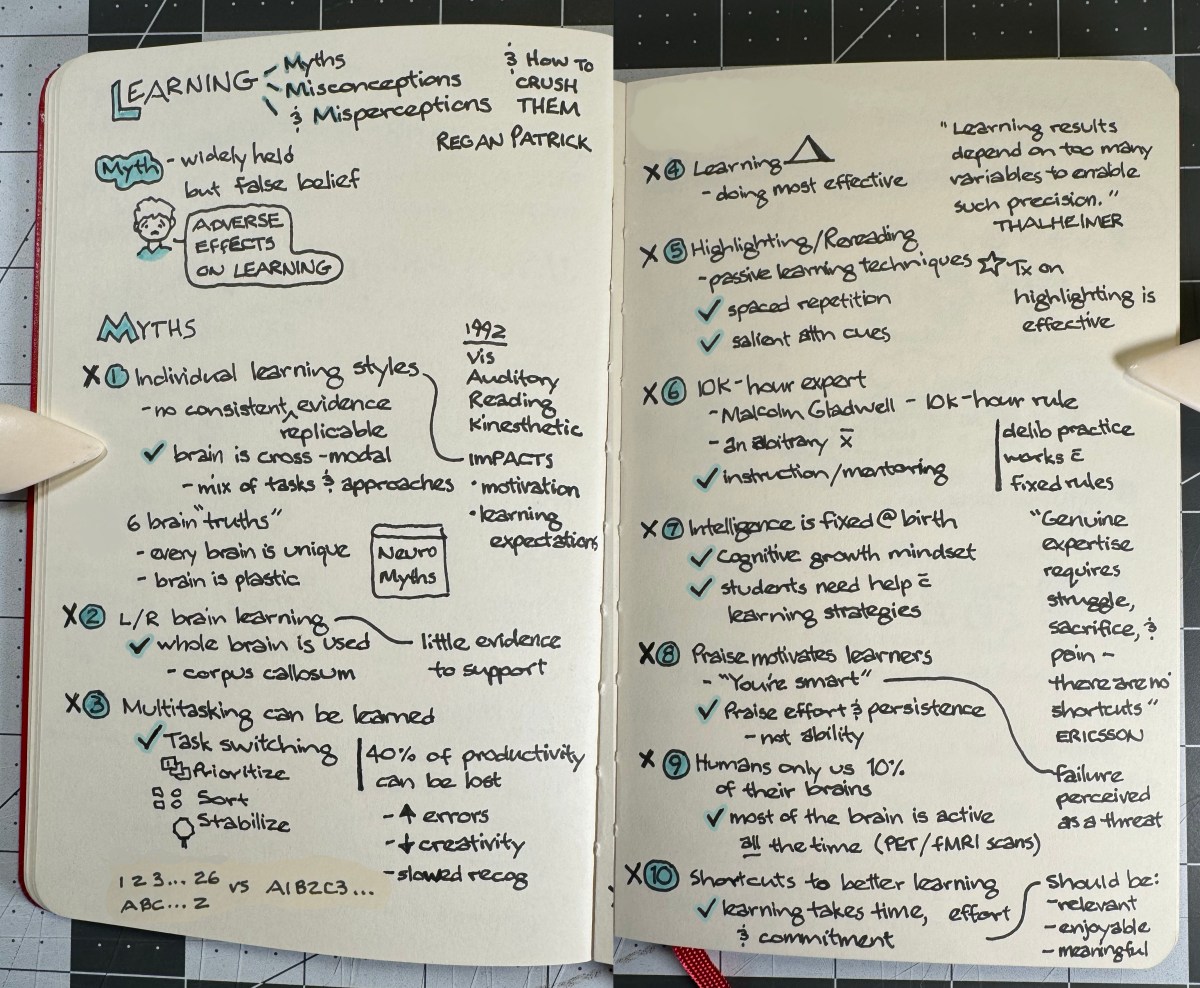 LEARNING
Myths
Misconceptions
& Misperceptions
& HOW TO
CRUSH
THEM
REGAN PATRICK
Myth - widely held
but false belief
ADVERSE
EFFECTS
ON LEARNING
MYTHS
X 1 Individual learning styles
- no consistent ^ evidence
replicable
✓ brain is cross-modal
- mix of tasks & approaches
1992
Vis
Auditory
Reading
Kinesthetic
IMPACTS
• motivation
• learning
expectations
6 brain "truths"
- every brain is unique
- brain is plastic
Neuro
Myths
X 2 L/R brain learning
✓ whole brain is used
- corpus callosum
little evidence
to support
X 3 Multitasking can be learned
✓ Task switching
Prioritize
Sort
Stabilize
40% of productivity
can be lost
- ↑ errors
- ↓ creativity
- slowed recog
1 2 3... 26
ABC... Z
vs A1B2C3...
X 4 Learning △
- doing most effective
"Learning results
depend on too many
variables to enable
such precision."
THALHEIMER
X 5 Highlighting/Rereading
- passive learning techniques
✓ spaced repetition
✓ salient attn cues
☆ Tx on
highlighting is
effective
X 6 10K-hour expert
- Malcolm Gladwell - 10K-hour rule
- an abitrary x̄
✓ instruction/mentoring
delib practice
works c̄
fixed rules
X 7 Intelligence is fixed @ birth
✓ Cognitive growth mindset
✓ students need help c̄
learning strategies
"Genuine
expertise
requires
struggle,
sacrifice, &
pain -
there are no
shortcuts"
ERICSSON
X 8 Praise motivates learners
- "You're smart"
✓ Praise effort & persistence
- not ability
failure
perceived
as a threat
X 9 Humans only us 10%
of their brains
✓ most of the brain is active
all the time (PET/fMRI scans)
X 10 Shortcuts to better learning
✓ learning takes time, effort
& commitment
should be:
- relevant
- enjoyable
- meaningful